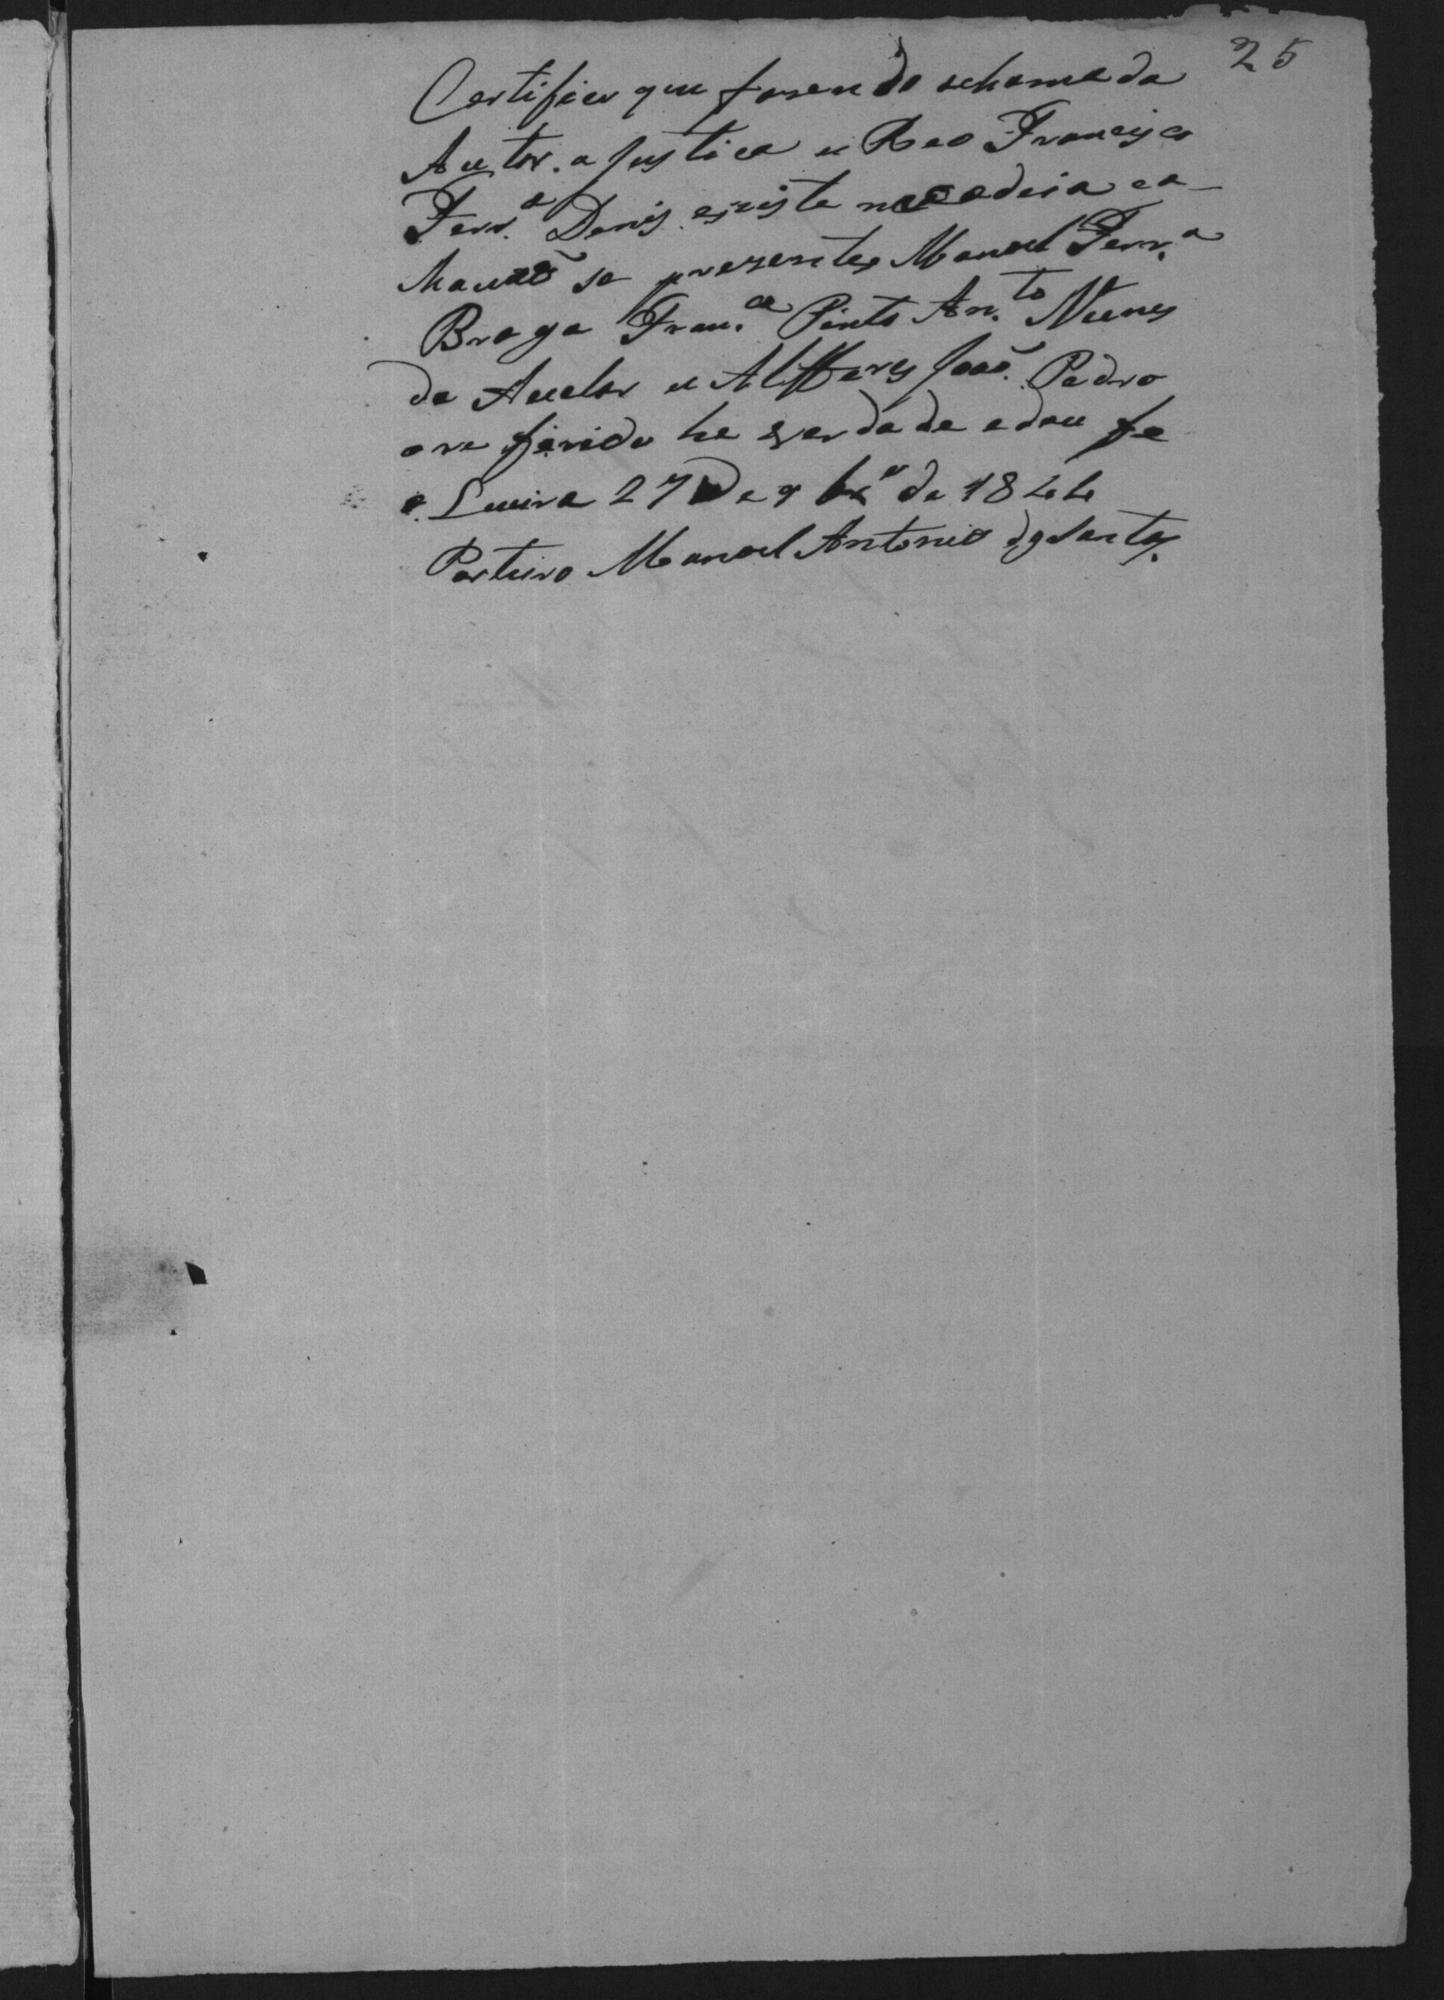 25
Certifico que fasendo achamada
Autor. a Justica e Reo Francisco
Ferr.ª Denis existe na cadeia ea
xhaväo se prezentes Manoel Ferr.ª
Braga Fran.co Pinto An.to Nunes
de Avelar e Alfferes Joaõ Pedro
ore ferido he verdade edou fe
Lucira 27 De 9 br.º de 1844
Porteiro Manoel Antonio dos Santos